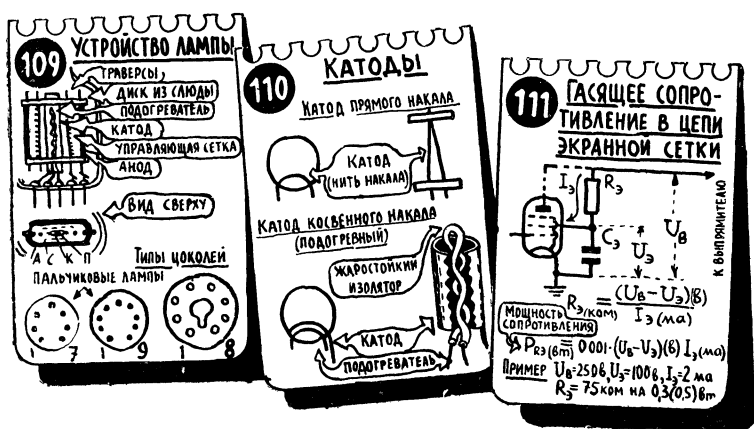 109
УСТРОЙСТВО ЛАМПЫ
ТРАВЕРСЫ
ДИСК ИЗ СЛЮДЫ
ПОДОГРЕВАТЕЛЬ
КАТОД
УПРАВЛЯЮЩАЯ СЕТКА
АНОД
ВИД СВЕРХУ
А С К П
ТИПЫ ЦОКОЛЕЙ
ПАЛЬЧИКОВЫЕ ЛАМПЫ
1 7 1 9 1 8
110
КАТОДЫ
КАТОД ПРЯМОГО НАКАЛА
КАТОД
(НИТЬ НАКАЛА)
КАТОД КОСВЕННОГО НАКАЛА
(ПОДОГРЕВНЫЙ)
ЖАРОСТОЙКИЙ
ИЗОЛЯТОР
КАТОД
ПОДОГРЕВАТЕЛЬ
111
ГАСЯЩЕЕ СОПРО-
ТИВЛЕНИЕ В ЦЕПИ
ЭКРАННОЙ СЕТКИ
Iэ Rэ
Cэ
Uэ
Uв
К ВЫПРЯМИТЕЛЮ
Rэ(ком) = (Uв−Uэ)(в) / Iэ(ма)
МОЩНОСТЬ
СОПРОТИВЛЕНИЯ
PRэ(вт) = 0001·(Uв−Uэ)(в) Iэ(ма)
ПРИМЕР Uв=250в, Uэ=100в, Iэ=2 ма
Rэ=75 ком НА 0,3(0,5) вт